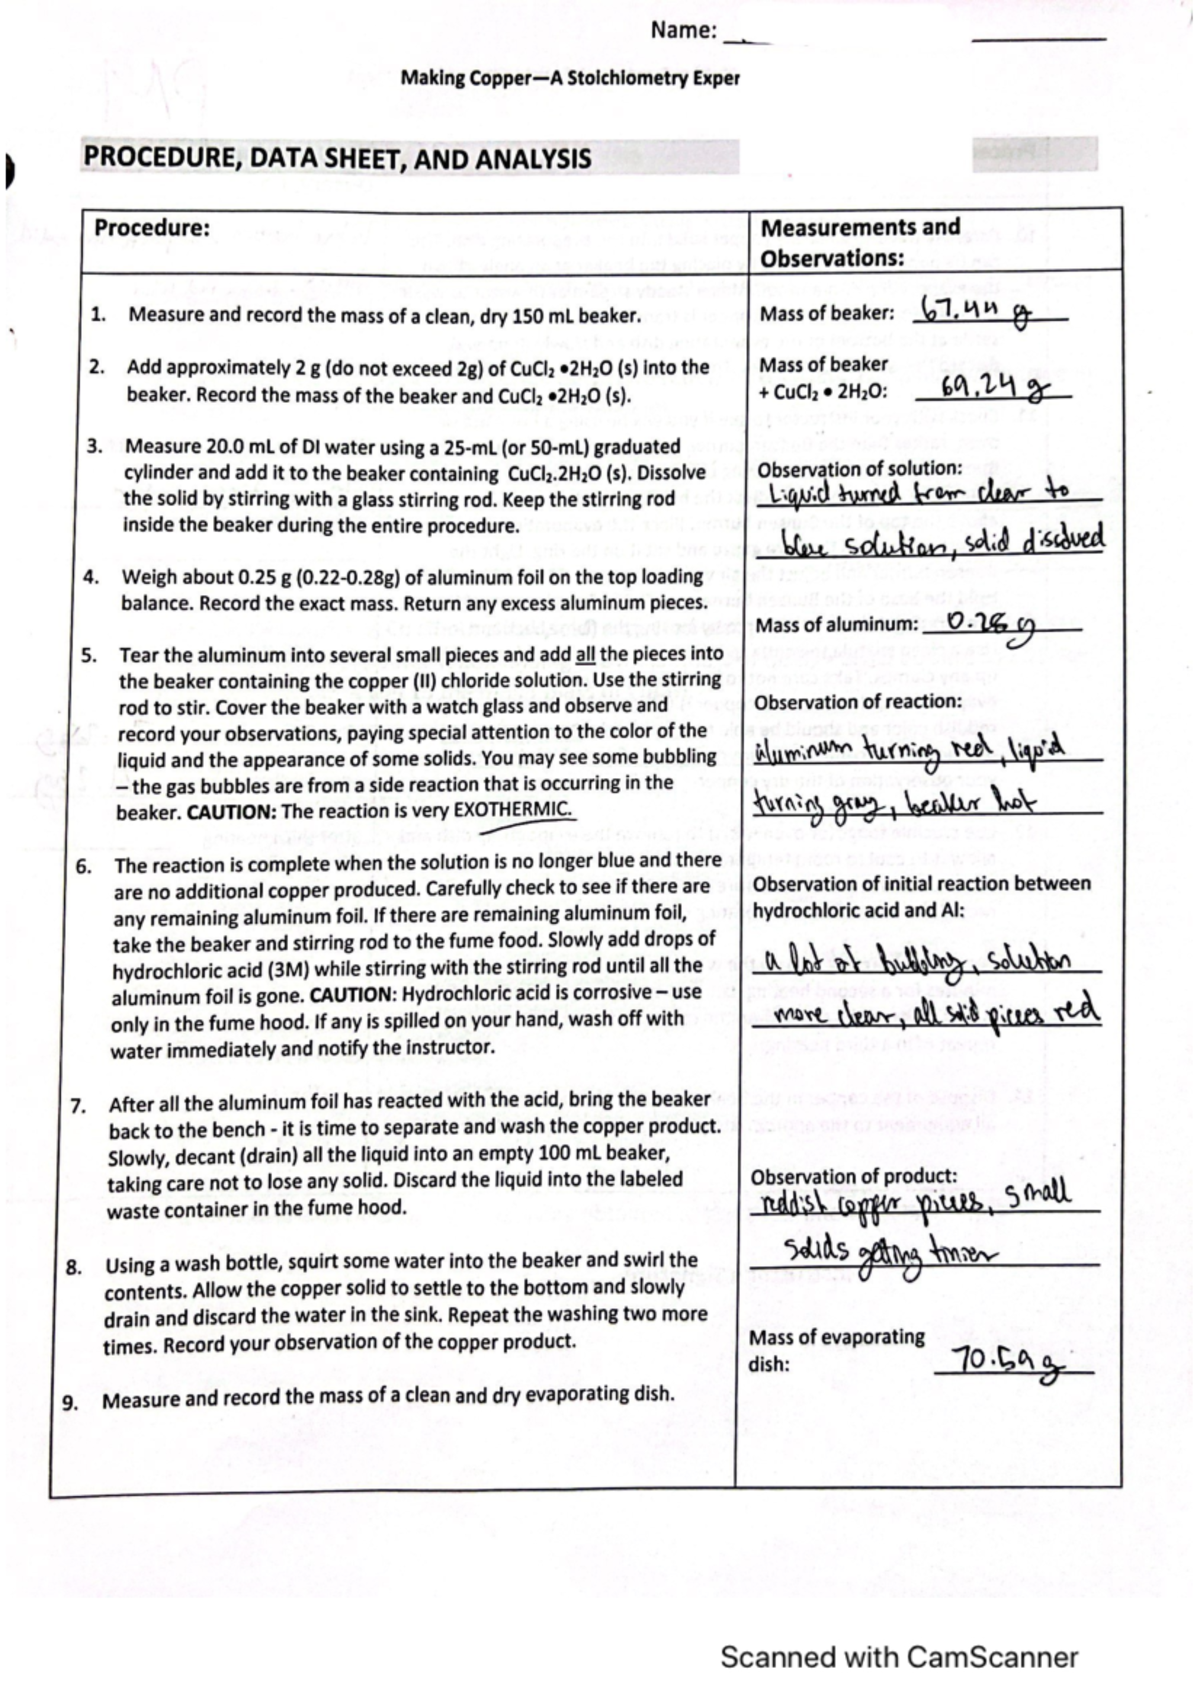 Name:
Making Copper—A Stoichiometry Exper
PROCEDURE, DATA SHEET, AND ANALYSIS
Procedure:
Measurements and
Observations:
1. Measure and record the mass of a clean, dry 150 mL beaker.
Mass of beaker: 67.44 g
2. Add approximately 2 g (do not exceed 2g) of CuCl₂ •2H₂O (s) into the
beaker. Record the mass of the beaker and CuCl₂ •2H₂O (s).
Mass of beaker
+ CuCl₂ • 2H₂O: 69.24 g
3. Measure 20.0 mL of DI water using a 25-mL (or 50-mL) graduated
cylinder and add it to the beaker containing CuCl₂.2H₂O (s). Dissolve
the solid by stirring with a glass stirring rod. Keep the stirring rod
inside the beaker during the entire procedure.
Observation of solution:
Liquid turned from clear to
blue solution, solid disolved
4. Weigh about 0.25 g (0.22-0.28g) of aluminum foil on the top loading
balance. Record the exact mass. Return any excess aluminum pieces.
Mass of aluminum: 0.28 g
5. Tear the aluminum into several small pieces and add all the pieces into
the beaker containing the copper (II) chloride solution. Use the stirring
rod to stir. Cover the beaker with a watch glass and observe and
record your observations, paying special attention to the color of the
liquid and the appearance of some solids. You may see some bubbling
– the gas bubbles are from a side reaction that is occurring in the
beaker. CAUTION: The reaction is very EXOTHERMIC.
Observation of reaction:
aluminum turning red, liquid
turning gray, beaker hot
6. The reaction is complete when the solution is no longer blue and there
are no additional copper produced. Carefully check to see if there are
any remaining aluminum foil. If there are remaining aluminum foil,
take the beaker and stirring rod to the fume food. Slowly add drops of
hydrochloric acid (3M) while stirring with the stirring rod until all the
aluminum foil is gone. CAUTION: Hydrochloric acid is corrosive – use
only in the fume hood. If any is spilled on your hand, wash off with
water immediately and notify the instructor.
Observation of initial reaction between
hydrochloric acid and Al:
a lot of bubbling, solution
more clear, all solid pieces red
7. After all the aluminum foil has reacted with the acid, bring the beaker
back to the bench - it is time to separate and wash the copper product.
Slowly, decant (drain) all the liquid into an empty 100 mL beaker,
taking care not to lose any solid. Discard the liquid into the labeled
waste container in the fume hood.
Observation of product:
reddish copper pieces, small
solids getting tinier
8. Using a wash bottle, squirt some water into the beaker and swirl the
contents. Allow the copper solid to settle to the bottom and slowly
drain and discard the water in the sink. Repeat the washing two more
times. Record your observation of the copper product.
Mass of evaporating
dish: 70.59 g
9. Measure and record the mass of a clean and dry evaporating dish.
Scanned with CamScanner